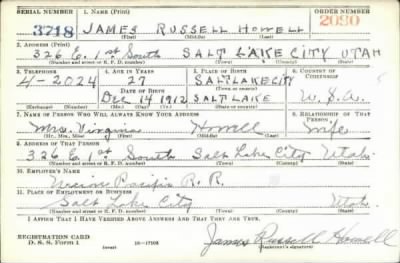 SERIAL NUMBER 1. NAME (Print) ORDER NUMBER
3718 JAMES RUSSELL HOWELL 2080
(First) (Middle) (Last)
2. ADDRESS (Print)
326 E. 1st South SALT LAKE CITY UTAH
(Number and street or R. F. D. number) (Town) (County) (State)
3. TELEPHONE 4. AGE IN YEARS 5. PLACE OF BIRTH 6. COUNTRY OF CITIZENSHIP
4-2024 27 SALT LAKE CITY
DATE OF BIRTH (Town or county)
Dec 14 1912 SALT LAKE U.S.A.
(Exchange) (Number) (Mo.) (Day) (Yr.) (State or country)
7. NAME OF PERSON WHO WILL ALWAYS KNOW YOUR ADDRESS 8. RELATIONSHIP OF THAT PERSON
Mrs. Virginia Howell Wife
(Mr., Mrs., Miss) (First) (Middle) (Last)
9. ADDRESS OF THAT PERSON
326 E. 1st South Salt Lake City Utah
(Number and street or R. F. D. number) (Town) (County) (State)
10. EMPLOYER'S NAME
Pacific R. R.
11. PLACE OF EMPLOYMENT OR BUSINESS
Salt Lake City Utah
(Number and street or R. F. D. number) (Town) (County) (State)
I AFFIRM THAT I HAVE VERIFIED ABOVE ANSWERS AND THAT THEY ARE TRUE.
REGISTRATION CARD
D. S. S. Form 1 16—17105 James Russell Howell
(Registrant's signature)